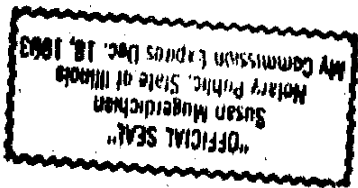 "OFFICIAL SEAL"
Susan Mugerdichian
Notary Public, State of Illinois
My Commission Expires Dec. 18, 1993